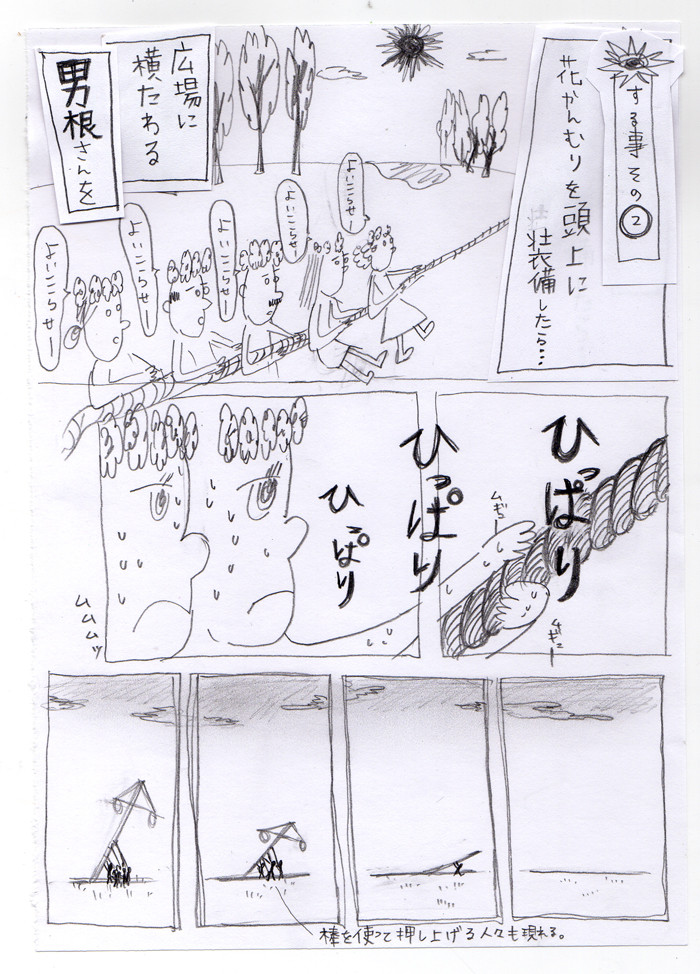 する事その②
花かんむりを頭上に
装備したら…
広場に
横たわる
男根さんを
よいこらせー
よいこらせー
よいこらせー
よいこらせー
よいこらせー
ひっぱり
ムギー
ムギー
ひっぱり
ひっぱり
ムムムッ
棒を使って押し上げる人々も現れる。